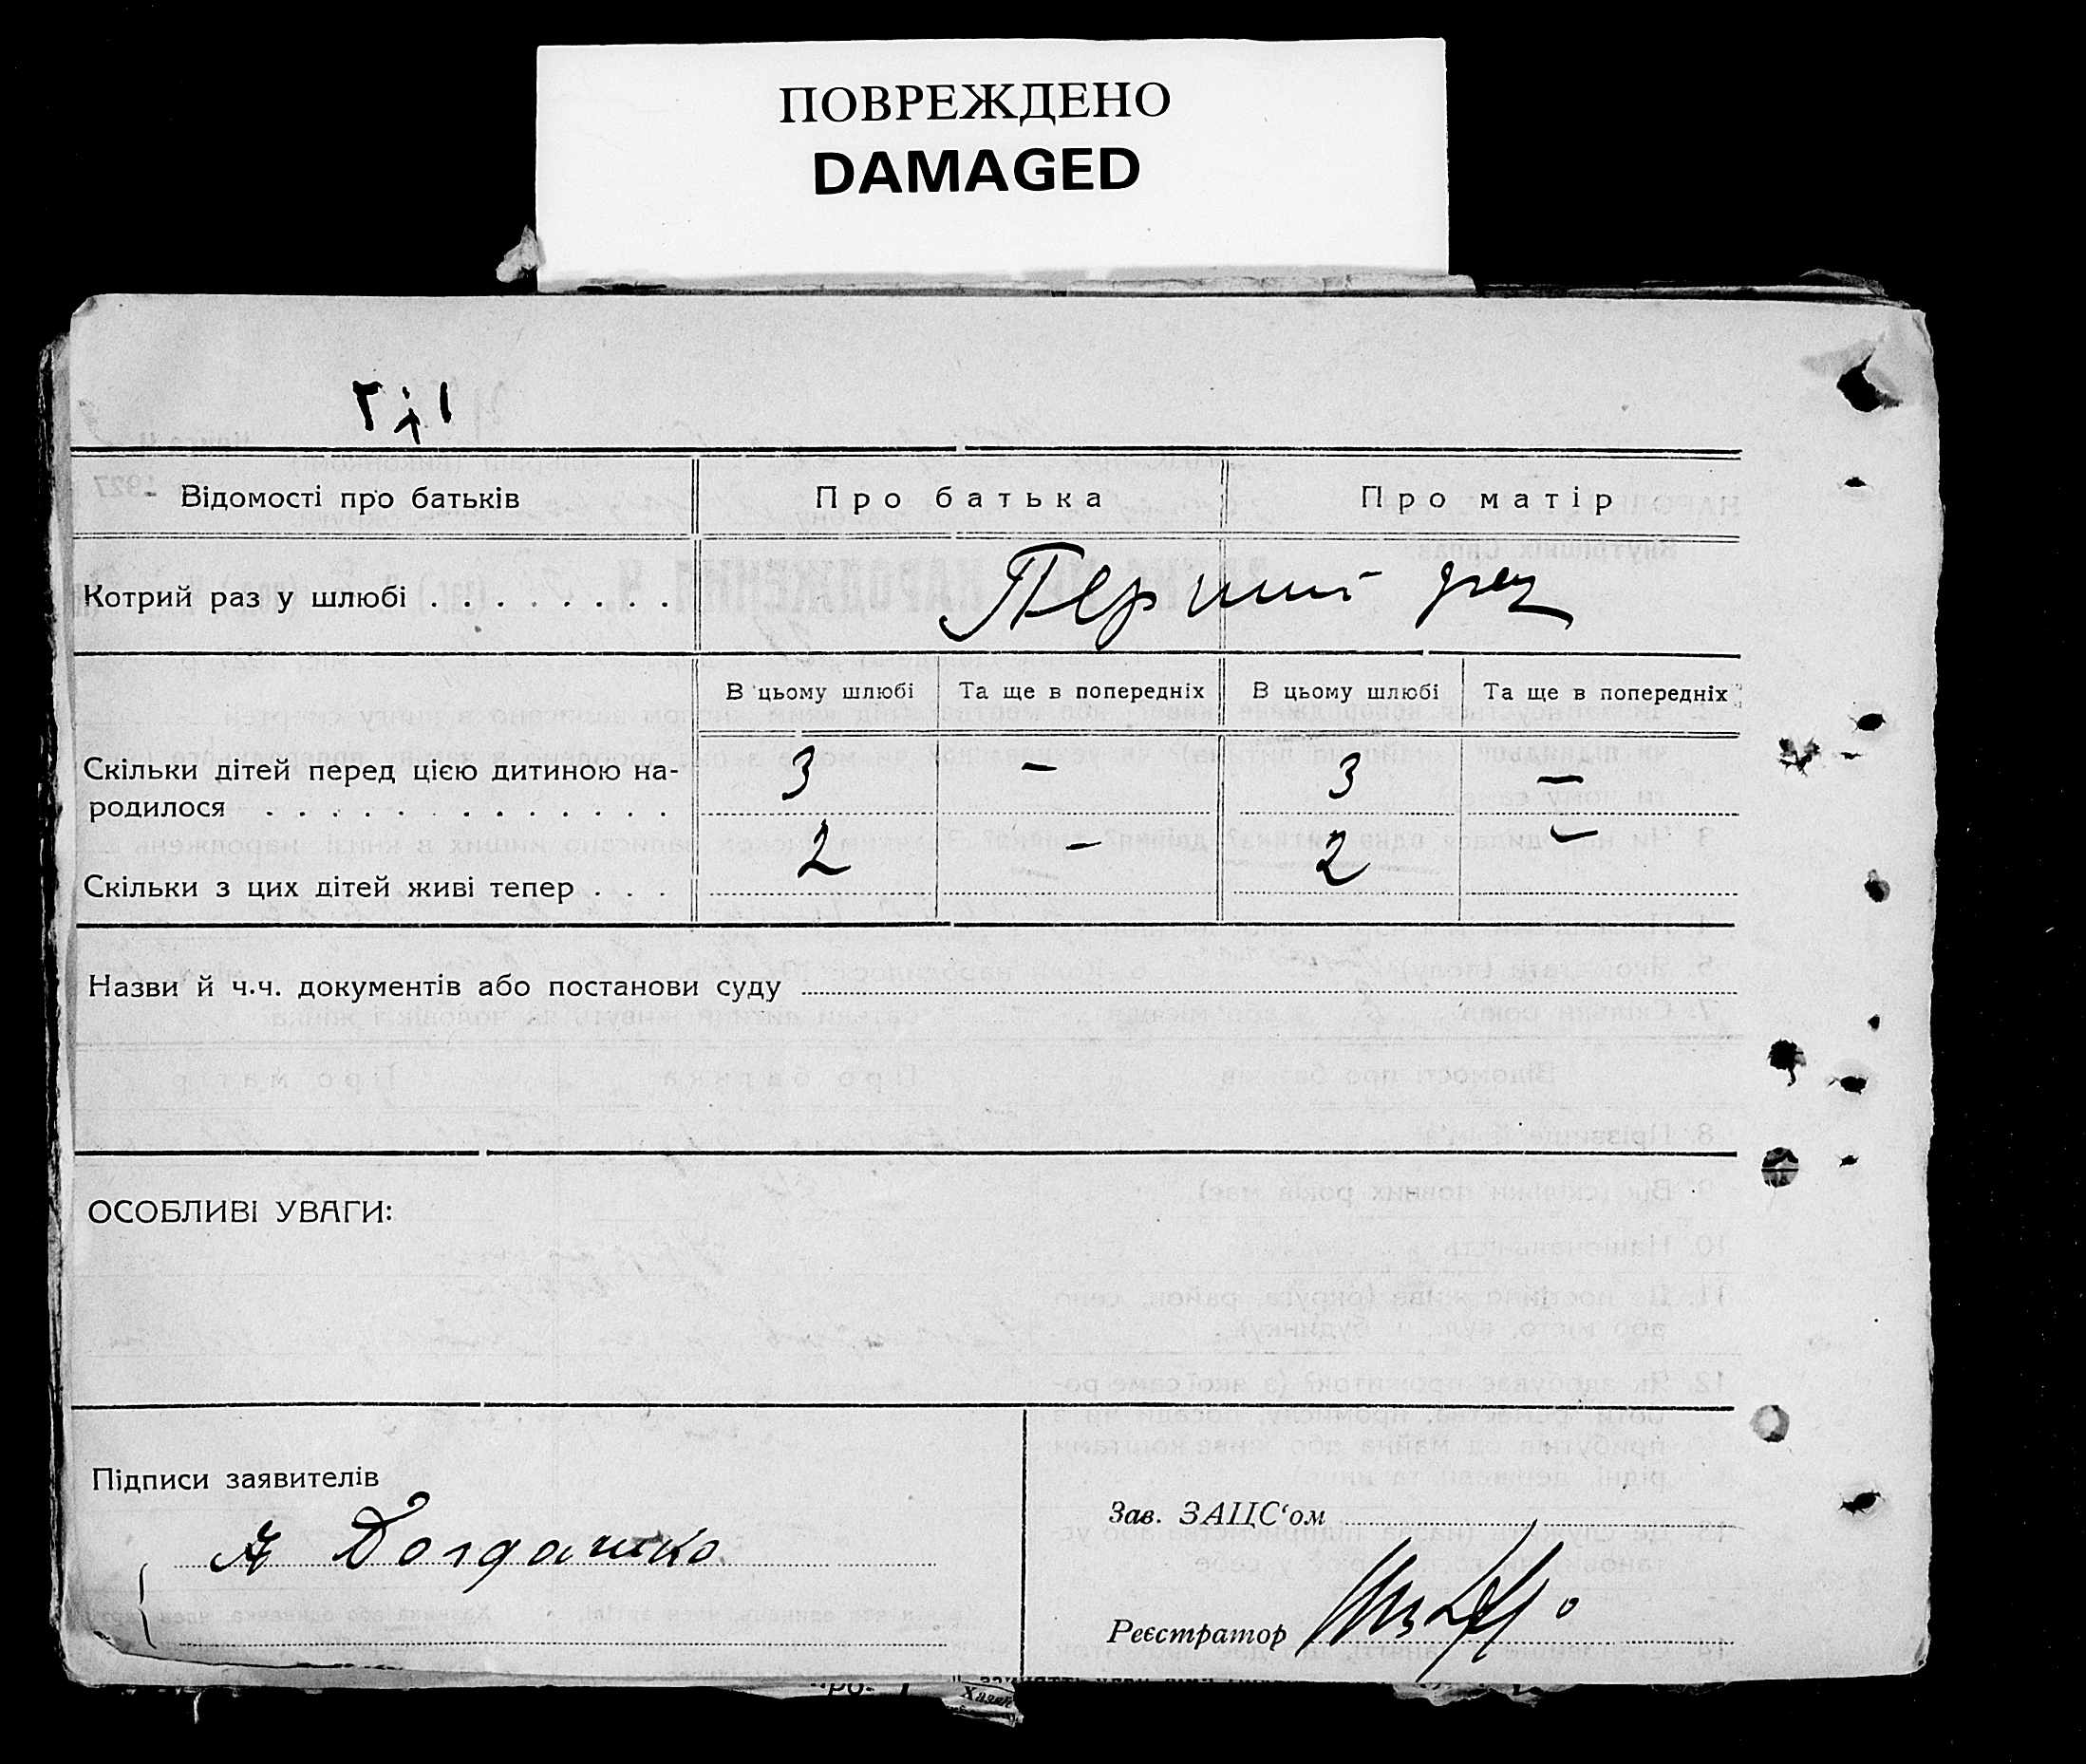 ПОВРЕЖДЕНО
DAMAGED
Відомості про батьків
Про батька
Про матір
Котрий раз у шлюбі . . . . . . . .
Перший раз
В цьому шлюбі
Та ще в попередніх
В цьому шлюбі
Та ще в попередніх
Скільки дітей перед цією дитиною на-
родилося . . . . . . . . . . . . .
3 – 3 –
Скільки з цих дітей живі тепер . . .
2 – 2 –
Назви й ч.ч. документів або постанови суду
ОСОБЛИВІ УВАГИ:
Підписи заявителів
Зав. ЗАЦС‘ом
Реєстратор